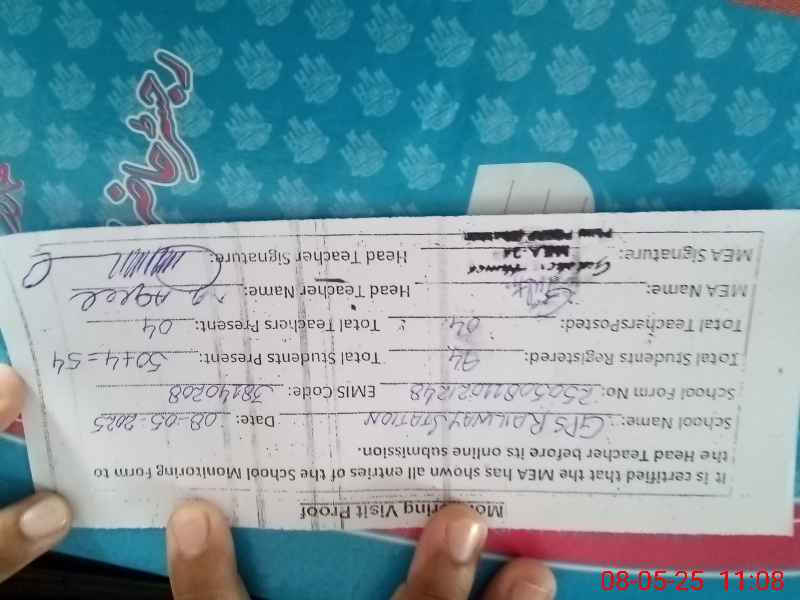 Monitoring Visit Proof
It is certified that the MEA has shown all entries of the School Monitoring Form to
the Head Teacher before its online submission.
School Name: GPS RAILWAY STATION Date: 08-05-2025
School Form No: EMIS Code: 38140208
Total Students Registered: 94 Total Students Present: 50+4=54
Total TeachersPosted: 04 Total Teachers Present: 04
MEA Name: Head Teacher Name: Aqeel
MEA Signature: Head Teacher Signature:
رجسٹر حاضری
08-05-25 11:08